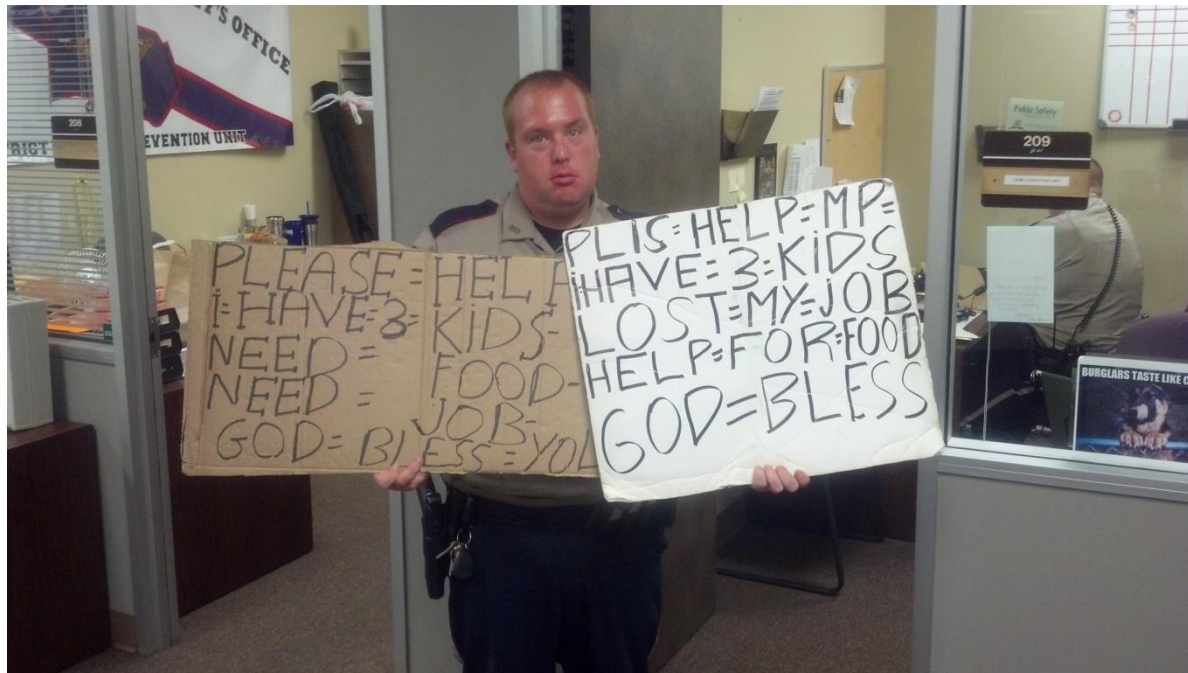 'S OFFICE
RICT
EVENTION UNIT
208
PLEASE = HELP
i-HAVE=3= KiDS-
NEED = FOOD-
NEED = JOB-
GOD= BLESS=YOU
PLIS=HELP=MP=
iHAVE=3=KiDS
LOST=MY=JOB
HELP=FOR=FOOD
GOD=BLESS
Public Safety
209
BURGLARS TASTE LIKE C